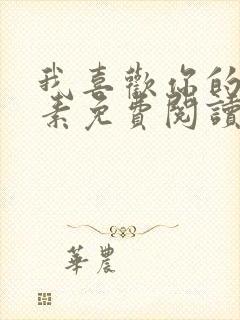 我喜歡你的
素免費閱讀
華農